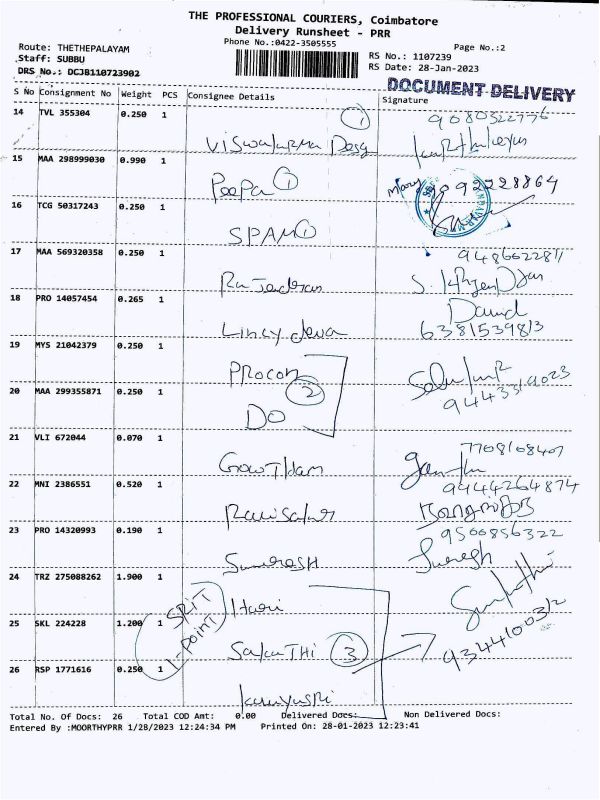 THE PROFESSIONAL COURIERS, Coimbatore
Delivery Runsheet - PRR
Phone No.:0422-3505555
Page No.:2
Route: THETHEPALAYAM
Staff: SUBBU
DRS No.: DCJB110723902
RS No.: 1107239
RS Date: 28-Jan-2023
DOCUMENT DELIVERY
S No Consignment No Weight PCS Consignee Details Signature
14 TVL 355304 0.250 1 1 9080322776
15 MAA 298999030 0.990 1 PeePa 1 Mary 9092228864
16 TCG 50317243 0.250 1 SPAM 1
17 MAA 569320358 0.250 1 Rajendran 9486622811
18 PRO 14057454 0.265 1 Lincy Jeva David
6381539813
19 MYS 21042379 0.250 1 Procon
20 MAA 299355871 0.250 1 2 DO
21 VLI 672044 0.070 1 GowTHam 7708108407
22 MNI 2386551 0.520 1 9444264874
23 PRO 14320993 0.190 1 9500856322
Suresh
24 TRZ 275088262 1.900 1 Hari
25 SKL 224228 1.200 1 SPLIT 1-POINT SakuTHi 3 9344100312
26 RSP 1771616 0.250 1
Total No. Of Docs: 26 Total COD Amt: 0.00 Delivered Docs: Non Delivered Docs:
Entered By :MOORTHYPRR 1/28/2023 12:24:34 PM Printed On: 28-01-2023 12:23:41